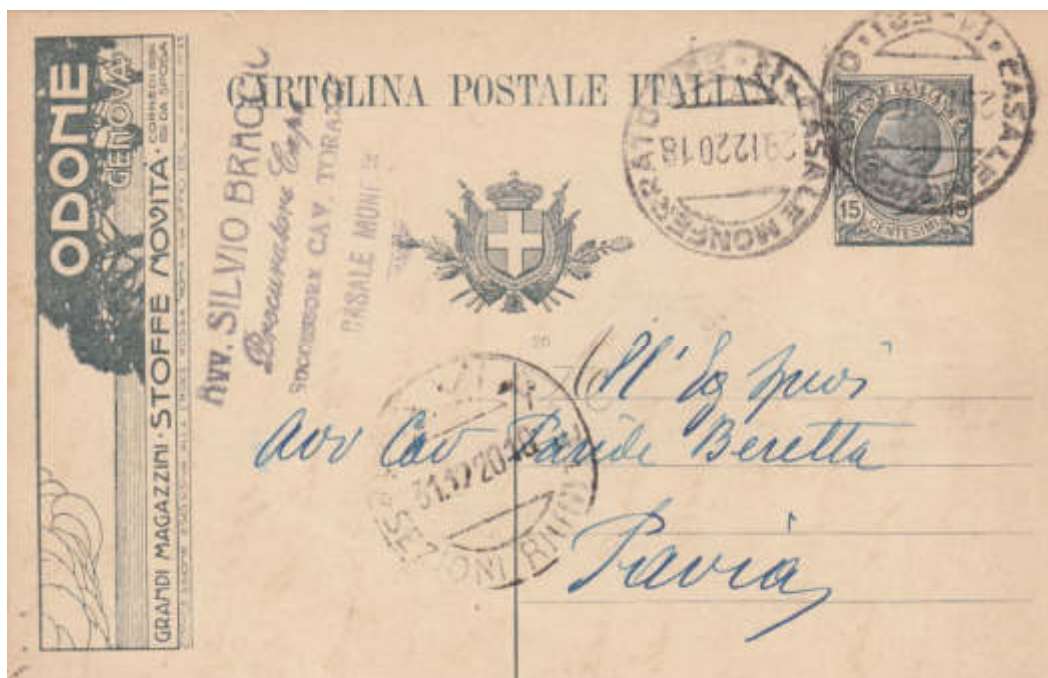 ODONE
GENOVA
GRANDI MAGAZZINI · STOFFE NOVITÀ · CORREDI DA SPOSA
CARTOLINA POSTALE ITALIANA
Avv. SILVIO BRAGGI
Procuratore Capo
SUCCESSORE CAV. TORA
CASALE MONF
CASALE MONFERRATO
29.12.20.18
CASALE
15
CENTESIMI
20
31.12.20.18
All'
Avv Cav Paride Beretta
Pavia